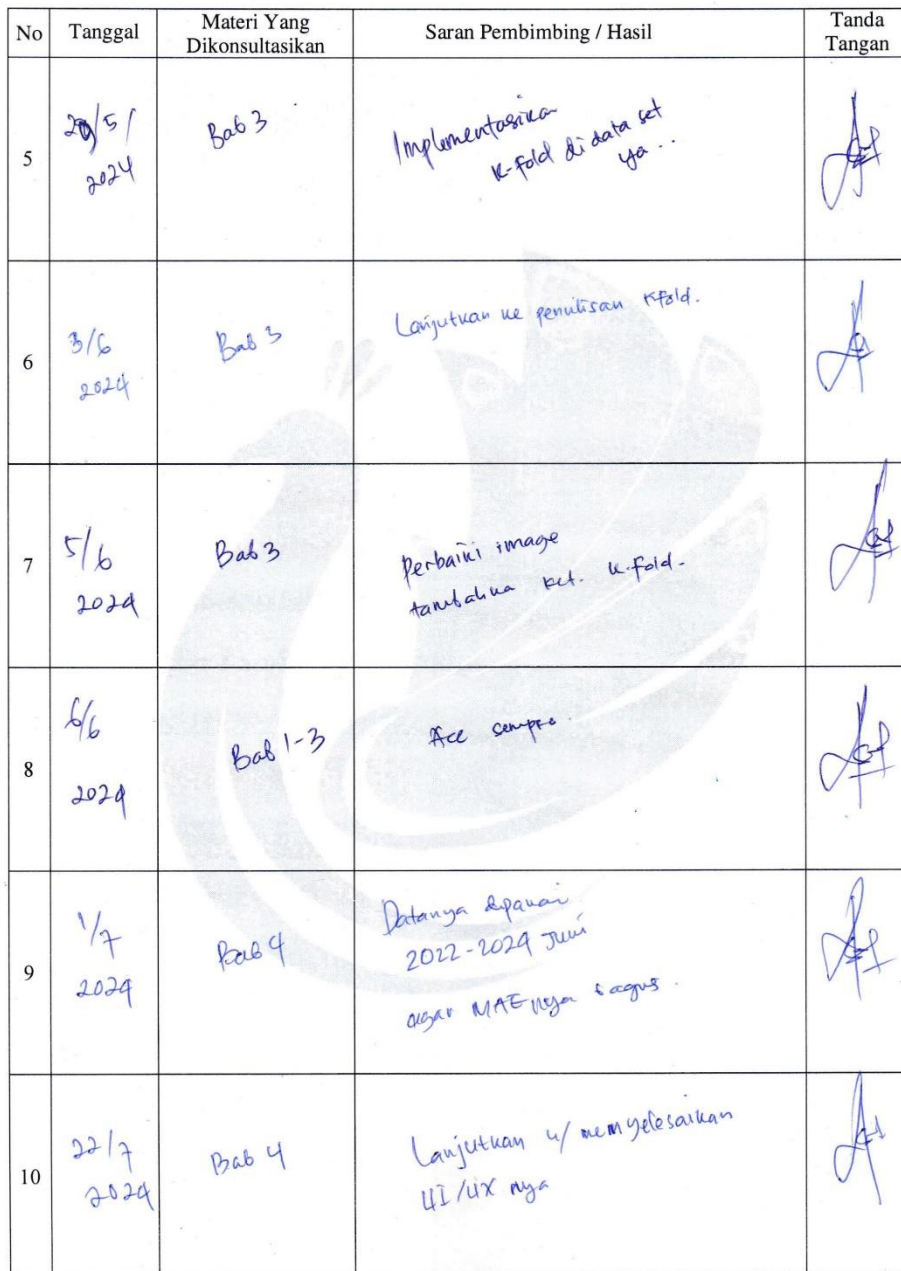 No Tanggal Materi Yang Dikonsultasikan Saran Pembimbing / Hasil Tanda Tangan
5
/5/
2024
Bab 3
Implementasika
K-fold di data set
ya..
6
3/6
2024
Bab 3
Lanjutkan ke penulisan Kfold.
7
5/6
2024
Bab 3
Perbaiki image
tambahka ket. k-fold.
8
6/6
2024
Bab 1-3
Acc sempro
9
1/7
2024
Bab 4
Datanya dipakai
2022-2024 Juni
agar MAE nya bagus.
10
22/7
2024
Bab 4
Lanjutkan u/ menyelesaikan
UI/UX nya